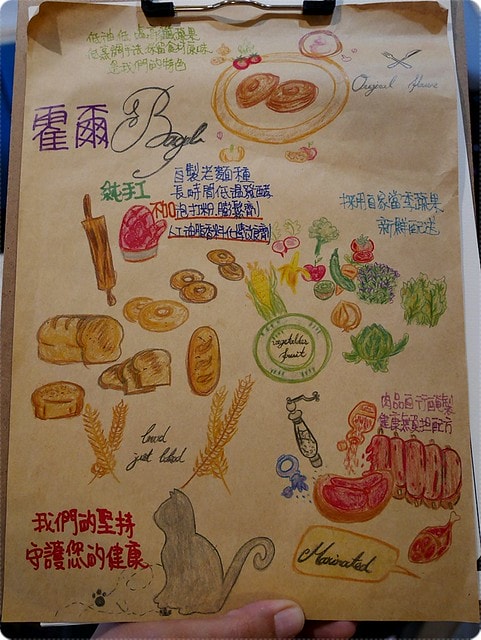 低油 低 蔬果
烹調手法 保留食材原味
是我們的特色
Original flavor
霍爾 Bagel
純手工
自製老麵種
長時間低溫發酵
不加泡打粉.膨鬆劑
人工油脂香料化
採用自家當季蔬果
新鮮配送
vegetables
fruit
肉品自行醃製
健康無負擔配方
bread
just baked
我們的堅持
守護您的健康
Marinated